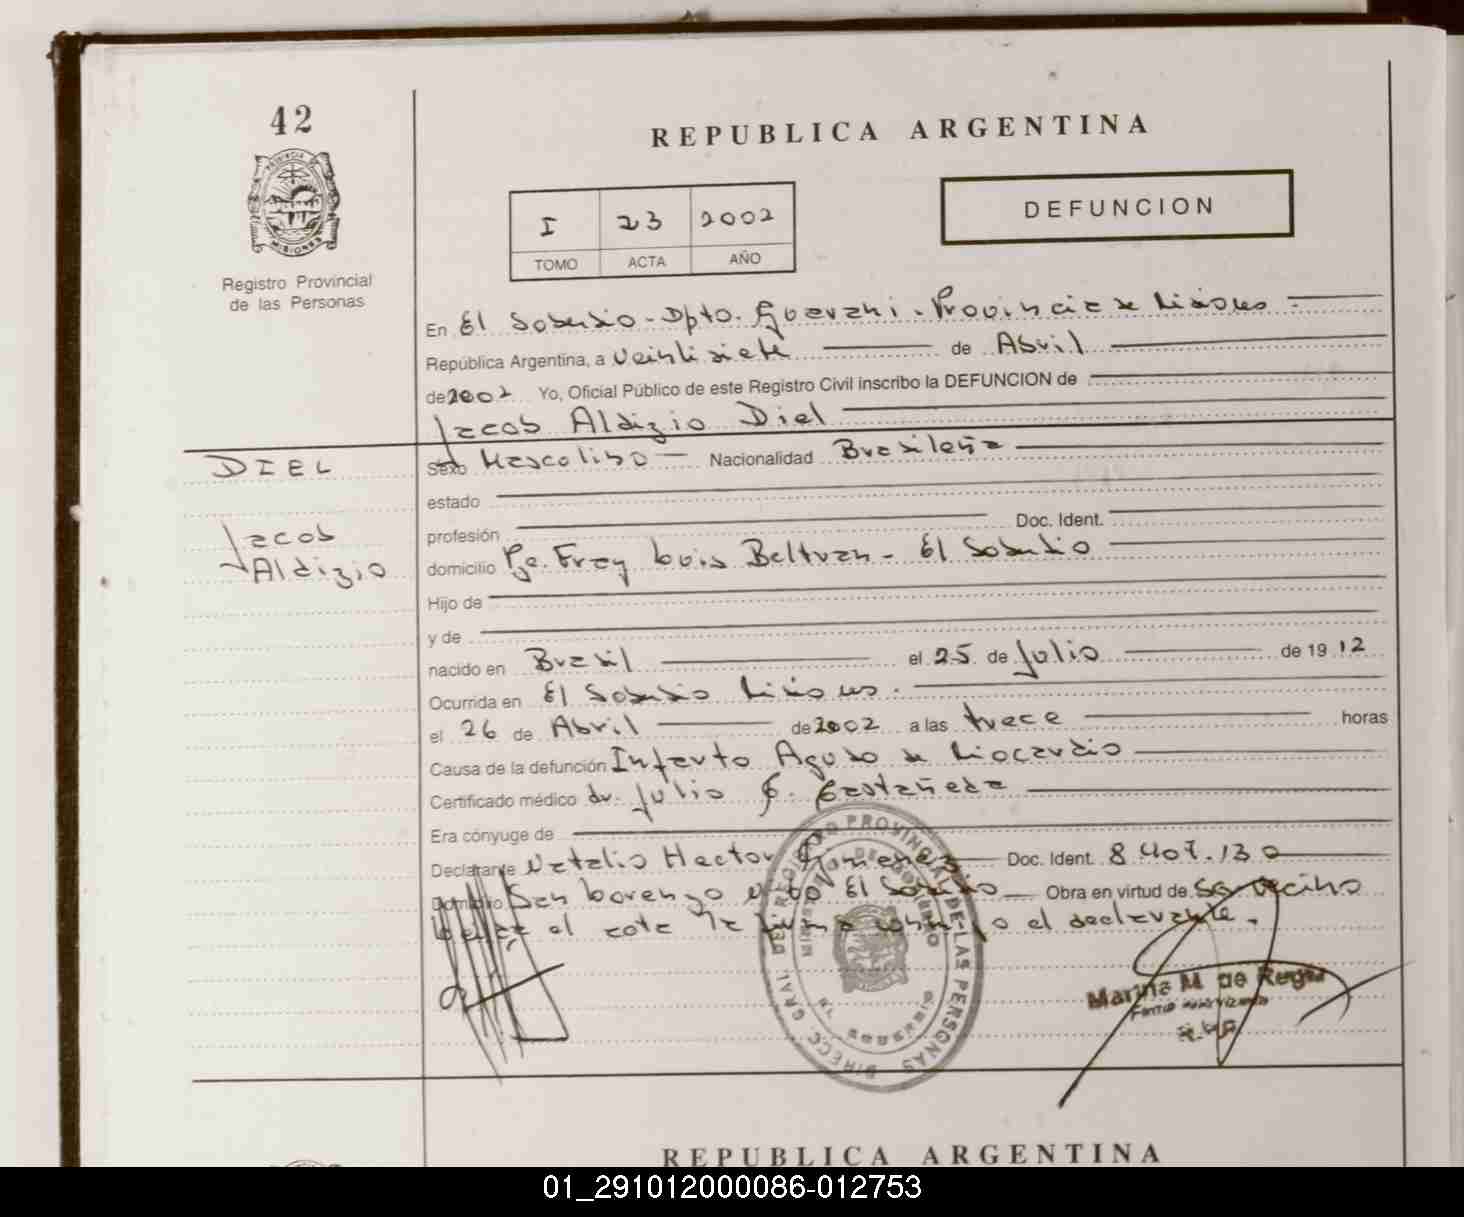 42
REPUBLICA ARGENTINA
PROVINCIA DE
MISIONES
I 23 2002
TOMO ACTA AÑO
DEFUNCION
Registro Provincial
de las Personas
En El Soberbio - Dpto. Guarani. Provincia de Misiones.
República Argentina, a veintisiete de Abril
de 2002 Yo, Oficial Público de este Registro Civil inscribo la DEFUNCION de
Jacob Aldizio Diel
DIEL
Jacob
Aldizio
Sexo Masculino Nacionalidad Brasileña
estado
profesión Doc. Ident.
domicilio Pje. Fray Luis Beltran - El Soberbio
Hijo de
y de
nacido en Brasil el 25 de Julio de 1912
Ocurrida en El Soberbio Misiones.
el 26 de Abril de 2002 a las trece horas
Causa de la defunción Infarto Agudo de Miocardio
Certificado médico dr. Julio G. Castañeda
Era cónyuge de
Declarante Natalio Hector Gimenez Doc. Ident. 8.407.130
Domicilio San Lorenzo El Soberbio Obra en virtud de ser vecino
el acta la firma conmigo el declarante.
DIRECC. GRAL. DEL REGISTRO PROVINCIAL DE LAS PERSONAS
MINISTERIO DE GOBIERNO
EL SOBERBIO
Marina M. de Regis
REPUBLICA ARGENTINA
01_291012000086-012753